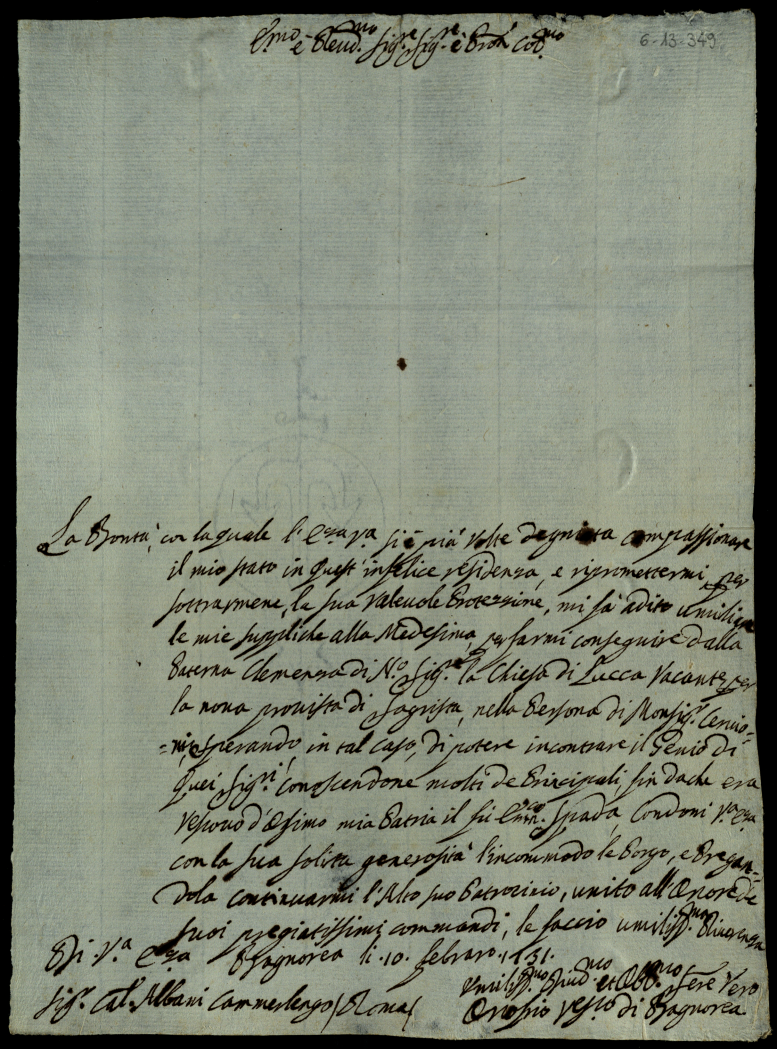 Emo e Reud.mo Sig.re Sig.re e Pron Col.mo
6-13-349
La Bontà, con la quale l'Eza Va si è più volte degniata compassionare
il mio stato in quest'infelice residenza, e ripromettermi per
sottrarmene, la sua valeuole Protezzione, mi fà adito umiliare
le mie suppliche alla Medesima, per farmi conseguire dalla
Paterna Clemenza di N.o Sig.re la Chiesa di Lucca Vacante per
la noua prouista di Sagrista, nella Persona di Monsig.r Ceruio=
=ni, sperando, in tal caso, di potere incontrare il Genio di
quei Sig.ri conoscendone molti de Principali, sin da che era
Vescouo d'Osimo mia Patria il fù Spada, Condoni V.a Eza
con la sua solita generosità l'incommodo le Porgo, e Pregan=
dola continuarmi l'Alto suo Patrozinio, unito all'Onore de
suoi pregiatissimi commandi, le faccio umiliss.ma Riuerenza
Di V.a Eza Bagnorea li 10. febraro 1731.
Umiliss.mo Diud.mo et Obb.mo Sere Vero
Sig. Cal. Albani Cammerlengo (Roma)
Onofrio Vesco di Bagnorea